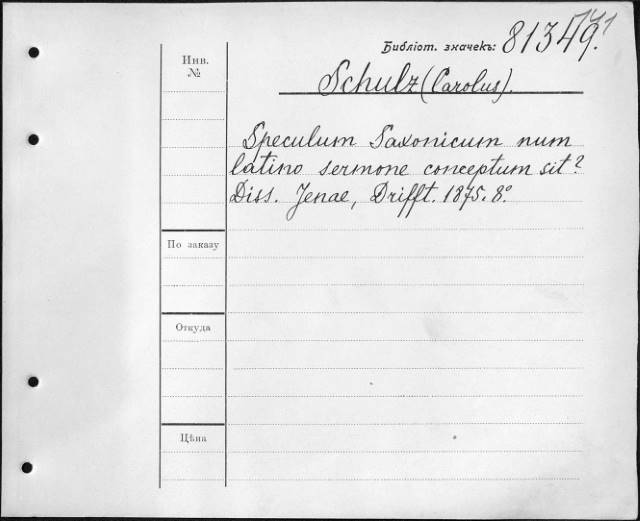 Библіот. значекъ: 81349.
Инв.
№
Schulz (Carolus).
Speculum Saxonicum num
latino sermone conceptum sit?
Diss. Jenae, Drifft. 1875. 8º.
По заказу
Откуда
Цѣна